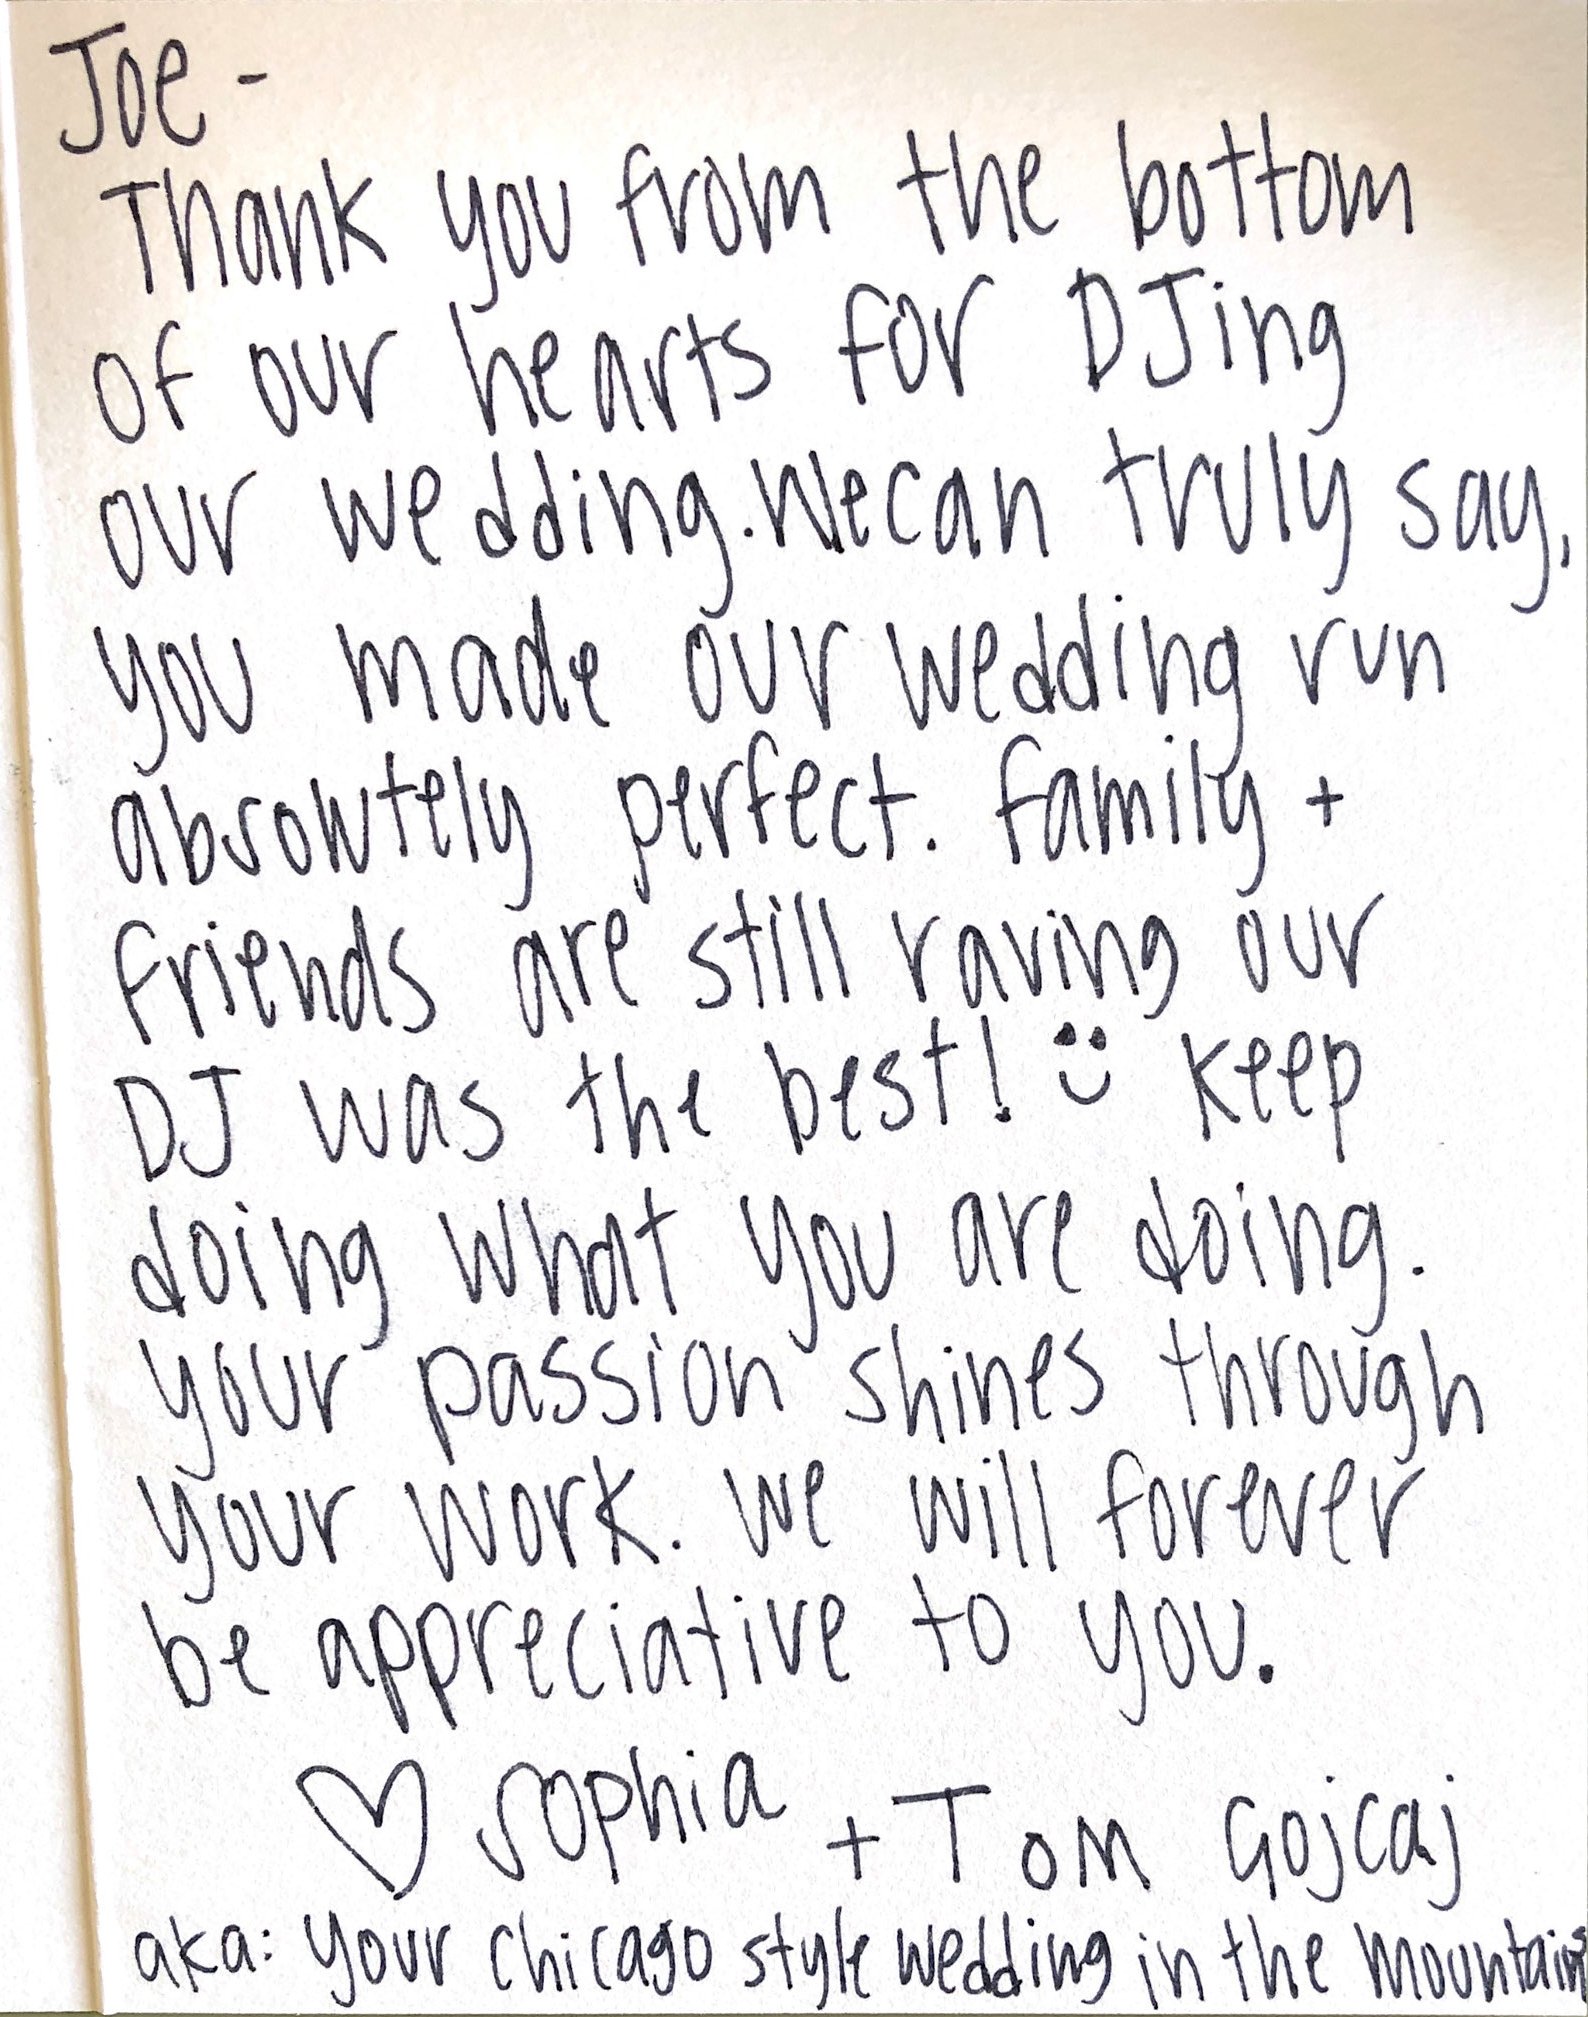 Joe -
Thank you from the bottom
of our hearts for DJing
our wedding. We can truly say,
you made our wedding run
absolutely perfect. family +
friends are still raving our
DJ was the best! :) keep
doing what you are doing.
your passion shines through
your work. we will forever
be appreciative to you.
♡ Sophia + Tom Gojcaj
aka: your chicago style wedding in the mountains